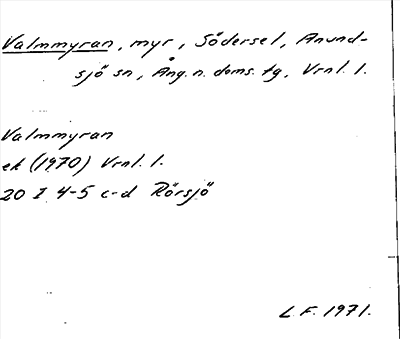 Valmmyran, myr, Södersel, Anund-
sjö sn, Ång. n. doms. tg, Vrnl. l.
Valmmyran
ek (1970) Vrnl. l.
20 I 4-5 c-d Rörsjö
L F. 1971.